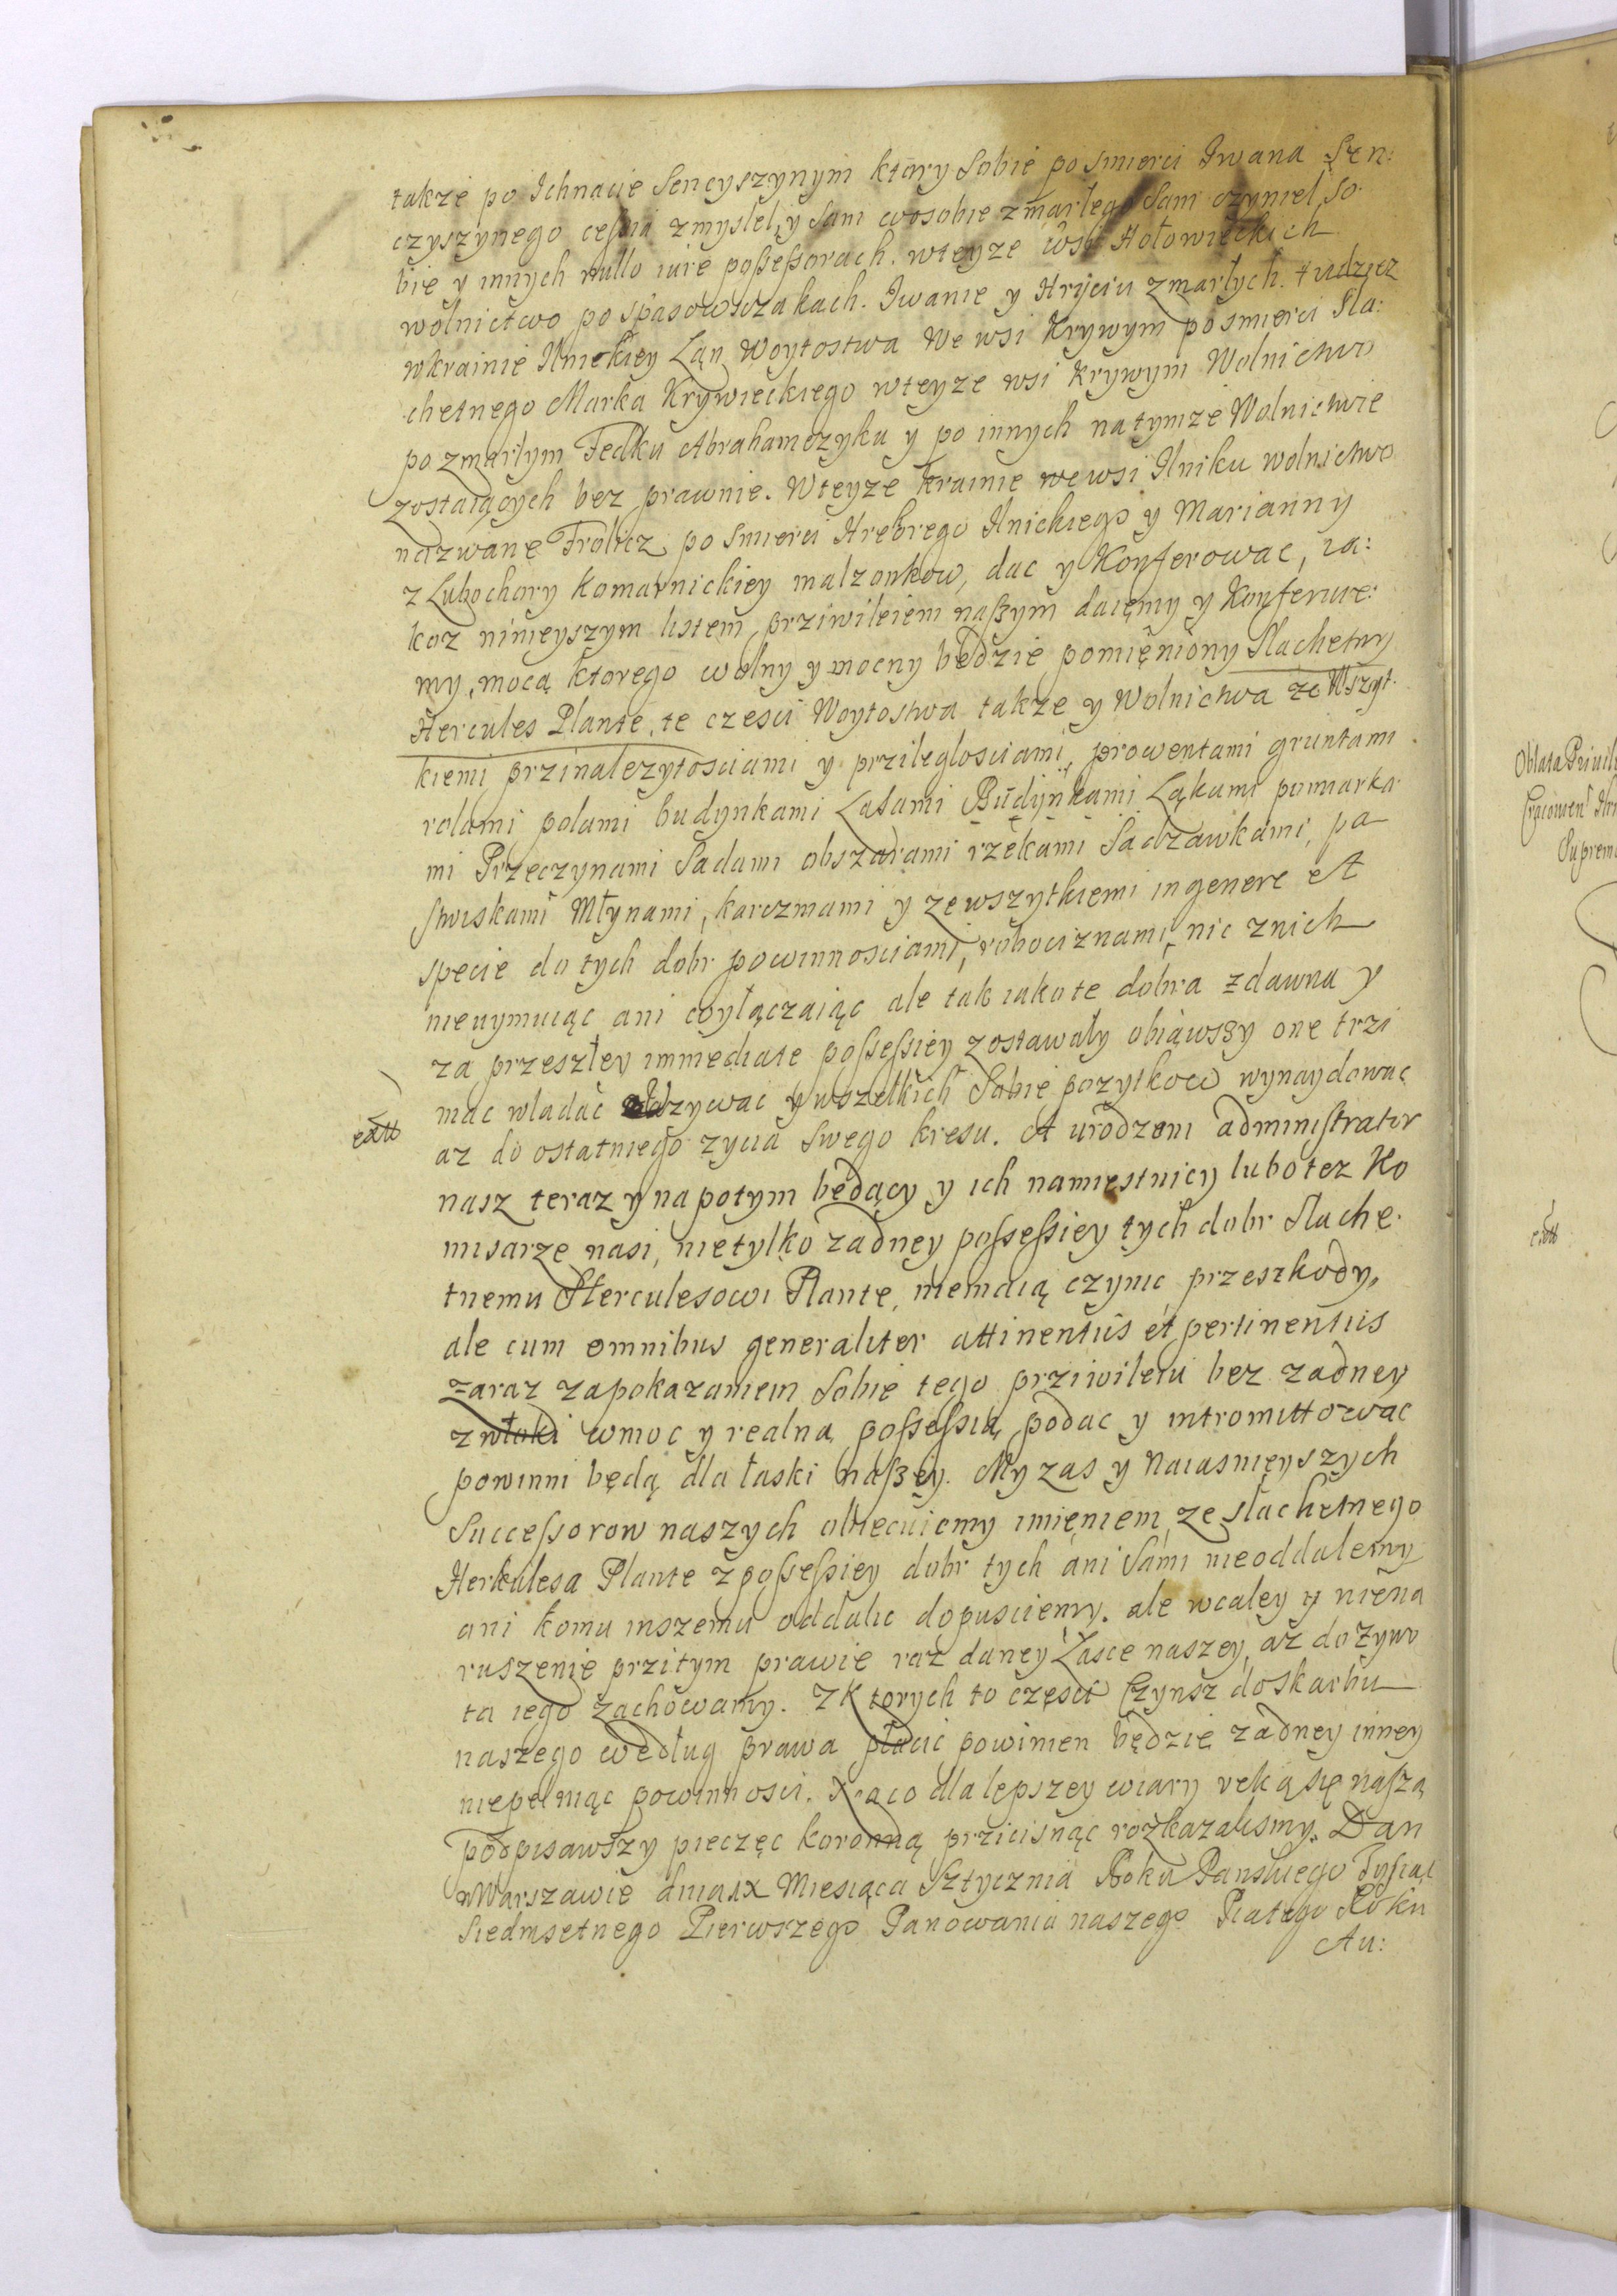 takze po Ichnacie Sencyszynym ktory Sobie po smierci Iwana Sen:
czyszynego cessia zmyslel, y Sam wosobie zmarłego Sam czyniel So
bie y innych nullo iure possessorach. wteyze wsi Hołowieckich
wolnictwo po Spasowszakach. Iwanie y Hryciu zmarłych. tudziez
wkrainie Ilnickiey Łąn Woytostwa We wsi Krywym po smierci Sla:
chetnego Marka Krywieckiego wteyze wsi Krywym Wolnictwo
po zmarłym Fedku Abrahamczyku y po innych natymze Wolnictwie
zostaiących bez prawnie. Wteyze krainie wewsi Ilniku wolnictwo
nazwane Frolicz po Smierci Hrehrego Ilnickiego y Marianny
z Lubochory Komarnickiey malzonkow, dac y Konferowac, ia:
koz ninieyszym listem, prziwileiem naszym daięmy y Konferuie:
my, mocą ktorego wolny y mocny będzie pomięniony Slachetny
Hercules Plante, te częsci Woytostwa takze y Wolnictwa ze Wszyt
kiemi przinalezytosciami y przileglosciami, prowentami gruntami
rolami polami budynkami Lasami Budynkami Łąkami pumiarka
mi Przeczynami Sadami obszarami rzekami Sadzawkami, pa
stwiskami Młynami, karczmami y zewszytkiemi in genere et
specie do tych dobr powinnosciami, robociznami, nic znich
nieuymuiąc ani wyłączaiąc ale tak iako te dobra zdawna y
za przeszłey immediate possessiey zostawały obiąwszy one trzi
mac władac uzywac y wszelkich Sobie pozytkow wynaydowac
eatt
az do ostatniego zycia Swego kresu. A urodzeni administrator
nasz teraz y na potym będący y ich namiestnicy lubo tez Ko
misarze nasi, nietylko zadney possessiey tych dobr Slache
tnemu Herculesowi Plante, niemaią czynic przeszkody,
ale cum omnibus generaliter attinentiis et pertinentiis
zaraz zapokazaniem Sobie tego prziwileiu bez zadney
zwłoki wmoc y realna possessią podac y intromittowac
powinni będą dla łaski naszey. My zas y Naiasnieyszych
Successorow naszych obiecuiemy imięniem, ze slachetnego
Herkulesa Plante z possessiey dobr tych ani Sami nieoddalemy
ani komu inszemu oddalic dopusciemy. ale wcaley y niena
ruszenie przitym prawie raz daney Łasce naszey, az do zywo
ta iego zachowamy. Z Ktorych to częsci Czynsz doskarbu
naszego według prawa płacic powinien będzie zadney inney
niepełniąc powinnosci. Na co dla lepszey wiary ręką się naszą
podpisawszy pieczęc koronną przicisnąc rozkazalismy. Dan
wWarszawie dnia IX Miesiąca Stycznia Roku Panskiego Tysiąc
Siedmsetnego Pierwszego Panowania naszego Piatego Roku
Au:
Oblata Privil
Suprem